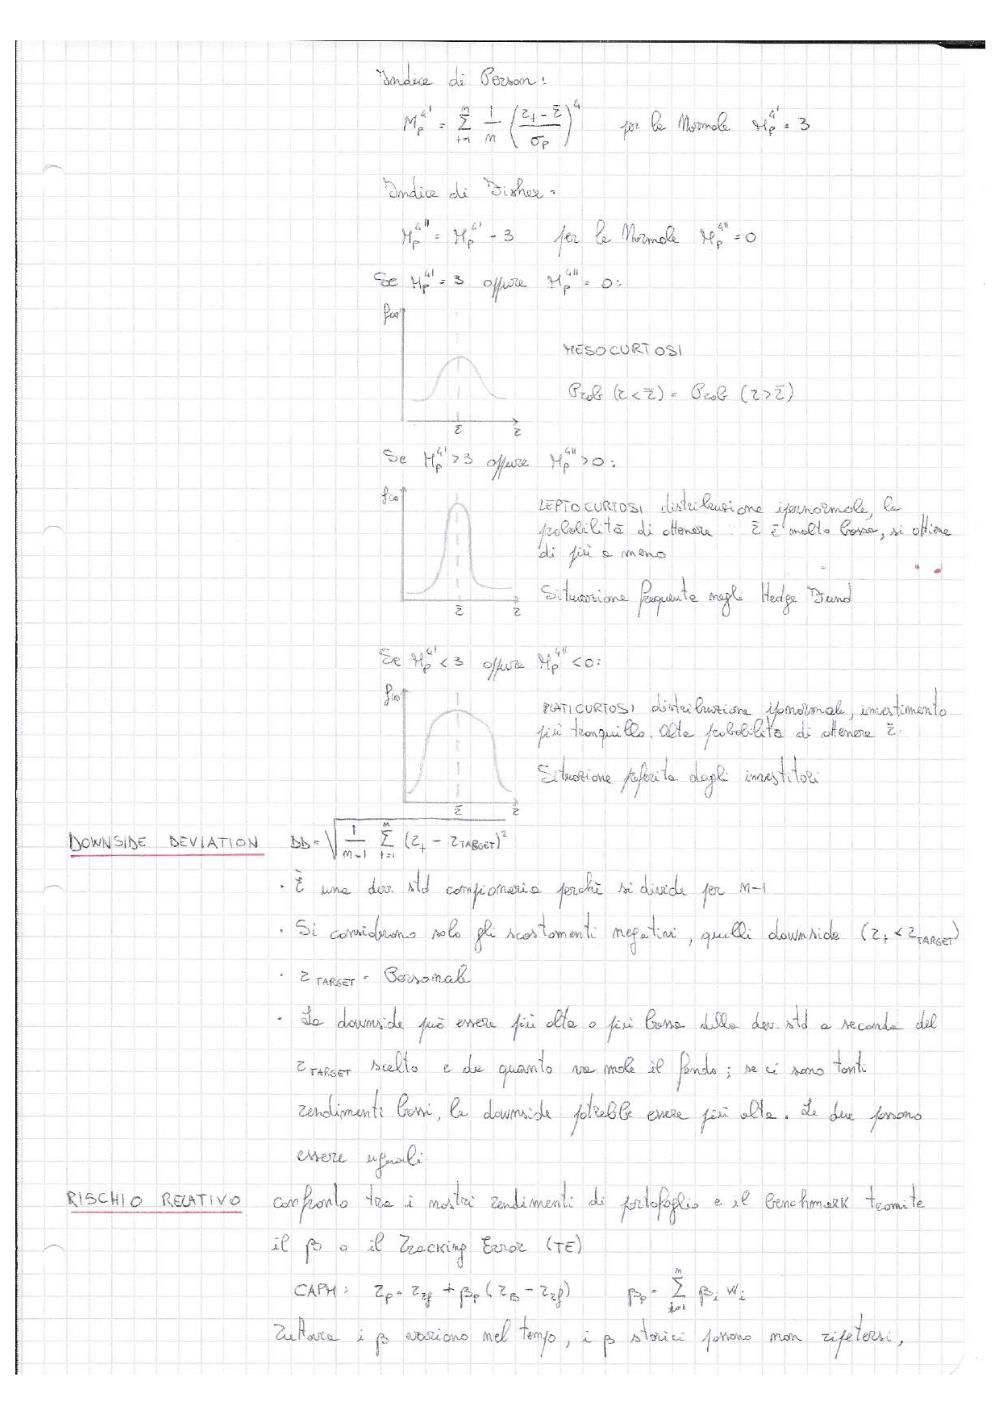 Indice di Person:
M_p^4' = Σ_{t=1}^m 1/m ((r_t - r̄)/σ_p)^4 per la Normale M_p^4' = 3
Indice di Fisher:
M_p^4'' = M_p^4' - 3 per la Normale M_p^4'' = 0
Se M_p^4' = 3 oppure M_p^4'' = 0:
f(r)
MESOCURTOSI
Prob (r < r̄) = Prob (r > r̄)
r̄ r
Se M_p^4' > 3 oppure M_p^4'' > 0:
f(r)
LEPTOCURTOSI distribuzione ipernormale, la
probabilità di ottenere r̄ è molto bassa, si ottiene
di più o meno
Situazione frequente negli Hedge Fund
r̄ r
Se M_p^4' < 3 oppure M_p^4'' < 0:
f(r)
PLATICURTOSI distribuzione iponormale, investimento
più tranquillo. Alta probabilità di ottenere r̄.
Situazione preferita dagli investitori
r̄ r
DOWNSIDE DEVIATION DD = √(1/(m-1) Σ_{t=1}^m (r_t - r_TARGET)²)
· È una dev. std campionaria perchè si divide per m-1
· Si considerano solo gli scostamenti negativi, quelli downside (r_t < r_TARGET)
· r_TARGET = Personale
· La downside può essere più alta o più bassa della dev. std a seconda del
r_TARGET scelto e da quanto va male il fondo; se ci sono tanti
rendimenti bassi, la downside potrebbe essere più alta. Le due possono
essere uguali
RISCHIO RELATIVO confronto tra i nostri rendimenti di portafoglio e il benchmark tramite
il β o il Tracking Error (TE)
CAPM: r_p = r_rf + β_p (r_B - r_rf) β_p = Σ_{i=1}^m β_i W_i
Tuttavia i β variano nel tempo, i β storici possono non ripetersi,